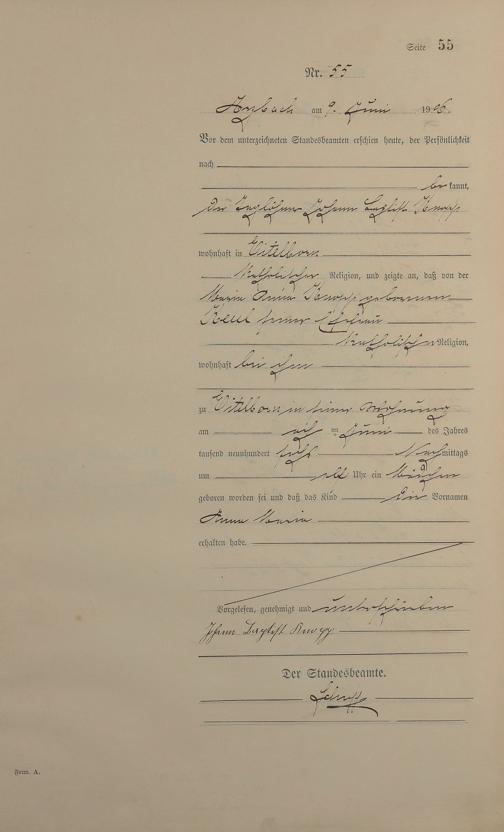 Seite 55
Nr. 55
Arzbach am 9. Juni 1906.
Vor dem unterzeichneten Standesbeamten erschien heute, der Persönlichkeit
nach
be kannt,
der Taglöhner Johann Baptist Knopp
wohnhaft in Eitelborn
katholischer Religion, und zeigte an, daß von der
Maria Anna Knopp geborenen
seiner Ehefrau
katholischer Religion,
wohnhaft bei ihm
zu Eitelborn in seiner Wohnung
am Juni des Jahres
tausend neunhundert sechs Nachmittags
um elf Uhr ein Mädchen
geboren worden sei und daß das Kind die Vornamen
Anna Maria
erhalten habe.
Vorgelesen, genehmigt und unterschrieben
Johann Baptist Knopp
Der Standesbeamte.
Form. A.